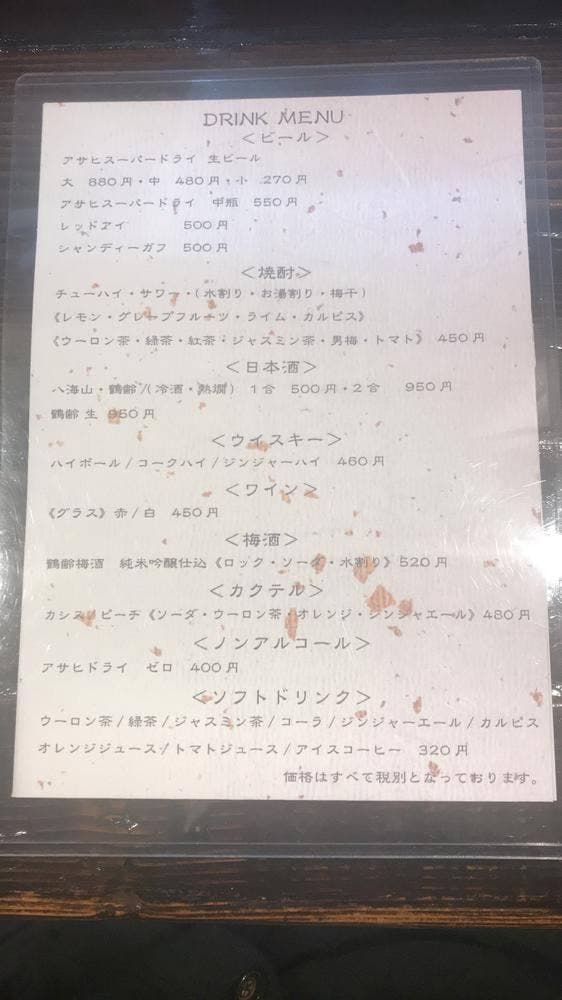 DRINK MENU
＜ビール＞
アサヒスーパードライ 生ビール
大 880円・中 480円・小 270円
アサヒスーパードライ 中瓶 550円
レッドアイ 500円
シャンディーガフ 500円
＜焼酎＞
チューハイ・サワー・(水割り・お湯割り・梅干)
《レモン・グレープフルーツ・ライム・カルピス》
《ウーロン茶・緑茶・紅茶・ジャスミン茶・男梅・トマト》 450円
＜日本酒＞
八海山・鶴齢/(冷酒・熱燗) 1合 500円・2合 950円
鶴齢 生 950円
＜ウイスキー＞
ハイボール/コークハイ/ジンジャーハイ 460円
＜ワイン＞
《グラス》赤/白 450円
＜梅酒＞
鶴齢梅酒 純米吟醸仕込《ロック・ソーダ・水割り》520円
＜カクテル＞
カシス/ピーチ《ソーダ・ウーロン茶・オレンジ・ジンジャエール》480円
＜ノンアルコール＞
アサヒドライ ゼロ 400円
＜ソフトドリンク＞
ウーロン茶/緑茶/ジャスミン茶/コーラ/ジンジャーエール/カルピス
オレンジジュース/トマトジュース/アイスコーヒー 320円
価格はすべて税別となっております。